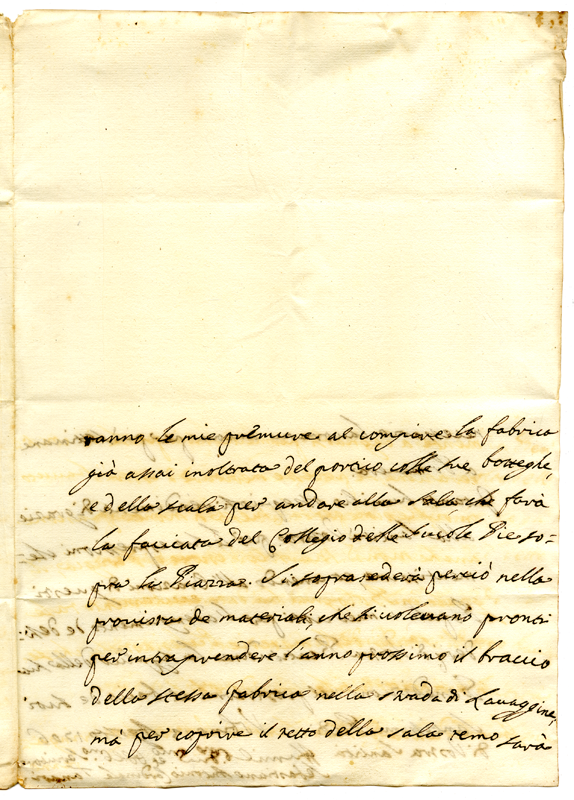 ranno le mie premure al compire la fabrica
già assai inoltrata del portico colle sue botteghe,
e della scala per andare alla sala che farà
la facciata del Collegio delle Scuole Pie so-
pra la Piazza. Si soprasederà perciò nella
provista de materiali, che si volevano pronti
per intraprendere l'anno prossimo il braccio
della stessa fabrica nella strada di Lavaggine,
mà per coprire il tetto della sala temo sarà